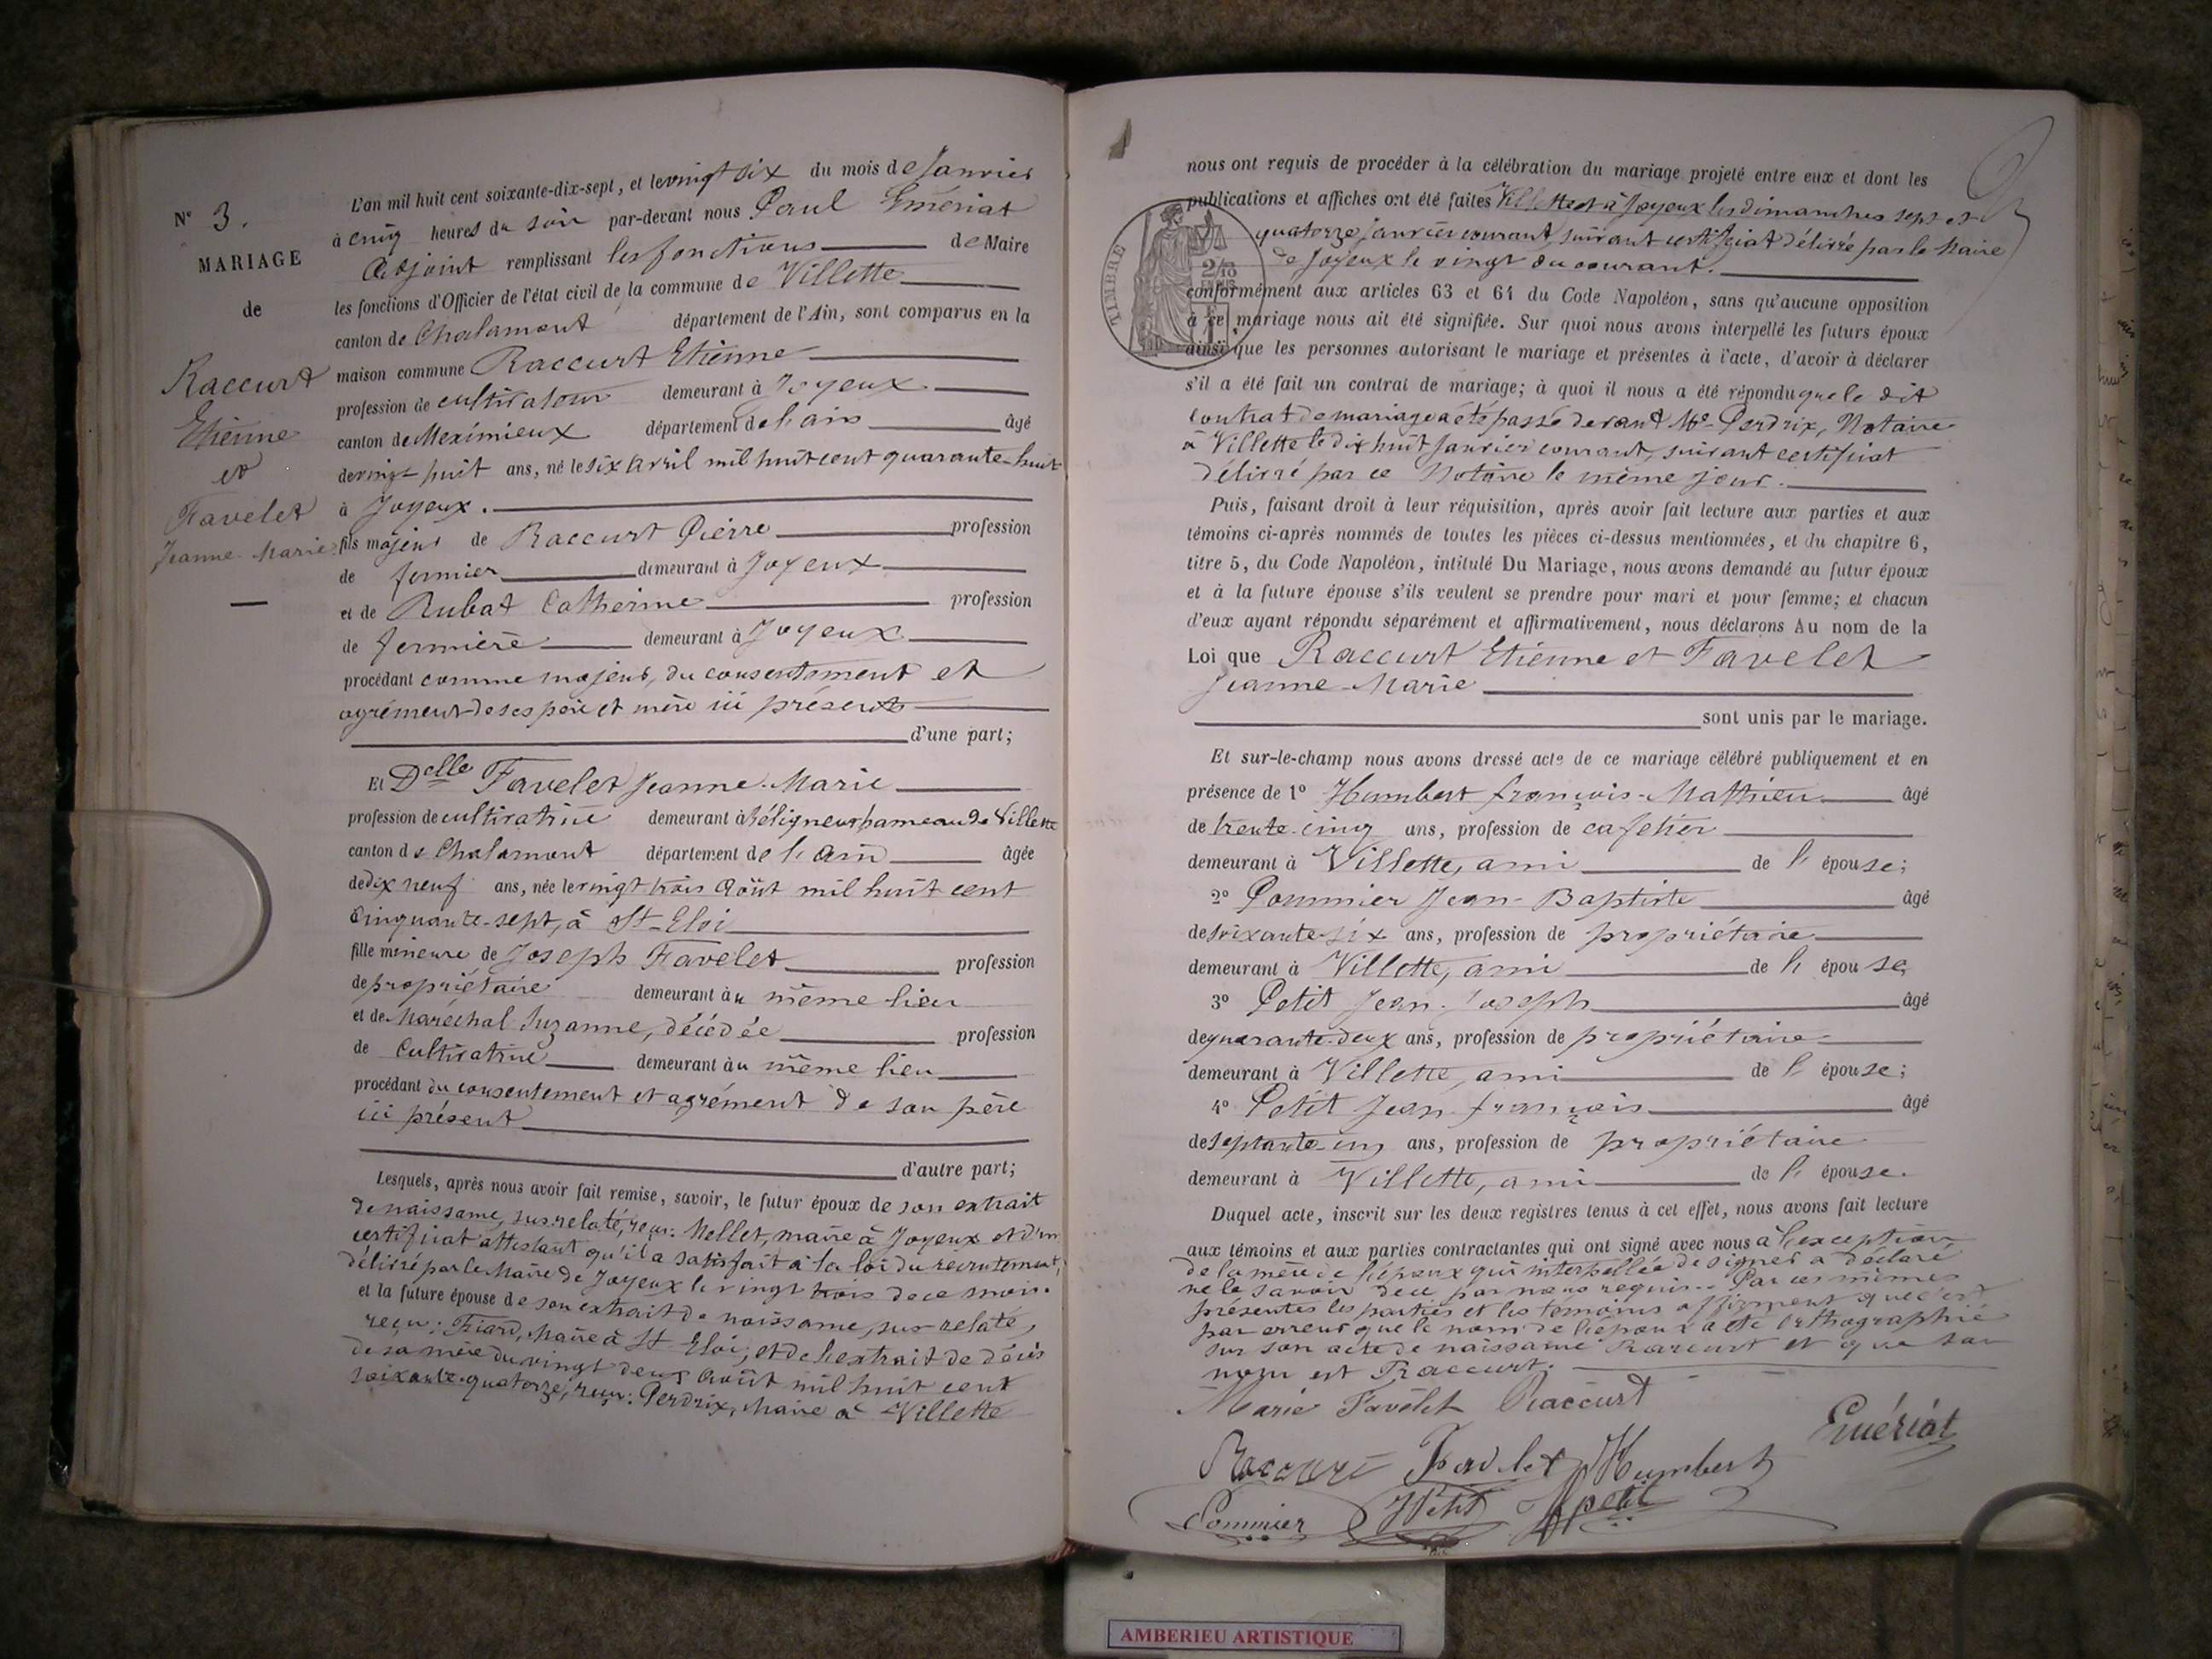 N° 3.
MARIAGE
de
Raccurt
Etienne
et
Favelet
Jeanne-Marie
L'an mil huit cent soixante-dix-sept, et le vingt six du mois de Janvier
à cinq heures du soir par-devant nous Paul Guériat
Adjoint remplissant les fonctions de Maire
les fonctions d'Officier de l'état civil de la commune de Villette
canton de Chalamont département de l'Ain, sont comparus en la
maison commune Raccurt Etienne
profession de cultivateur demeurant à Joyeux
canton de Meximieux département de l'ain âgé
de vingt-huit ans, né le six avril mil huit cent quarante-huit
à Joyeux.
fils majeur de Raccurt Pierre profession
de fermier demeurant à Joyeux
et de Rubat Catherine profession
de fermière demeurant à Joyeux
procédant comme majeur, du consentement et
agrément de ses père et mère ici présents
d'une part;
Et Delle Favelet Jeanne-Marie
profession de cultivatrice demeurant à Béligneux hameau de Villette
canton de Chalamont département de l'ain âgée
de dix neuf ans, née le vingt trois Août mil huit cent
cinquante-sept, à St-Eloi
fille mineure de Joseph Favelet profession
de propriétaire demeurant au même lieu
et de Maréchal Suzanne, décédée profession
de cultivatrice demeurant au même lieu
procédant du consentement et agrément de son père
ici présent
d'autre part;
Lesquels, après nous avoir fait remise, savoir, le futur époux de son extrait
de naissance, sus-relaté, reçu: Mellet, maire à Joyeux et d'un
certificat attestant qu'il a satisfait à la loi du recrutement,
délivré par le Maire de Joyeux le vingt trois de ce mois.
et la future épouse de son extrait de naissance, sus relaté,
reçu: Fiard, Maire à St Eloi, et de l'extrait de décès
de sa mère du vingt deux Août mil huit cent
soixante-quatorze, reçu: Perdrix, Maire à Villette
nous ont requis de procéder à la célébration du mariage projeté entre eux et dont les
publications et affiches ont été faites Villette et à Joyeux les dimanches sept et
quatorze janvier courant, suivant certificat délivré par le Maire
de Joyeux le vingt du courant.
TIMBRE
2/10
conformément aux articles 63 et 64 du Code Napoléon, sans qu'aucune opposition
à ce mariage nous ait été signifiée. Sur quoi nous avons interpellé les futurs époux
ainsi que les personnes autorisant le mariage et présentes à l'acte, d'avoir à déclarer
s'il a été fait un contrat de mariage; à quoi il nous a été répondu que le dit
contrat de mariage a été passé devant Me Perdrix, Notaire
à Villette le dix huit Janvier courant, suivant certificat
délivré par ce Notaire le même jour.
Puis, faisant droit à leur réquisition, après avoir fait lecture aux parties et aux
témoins ci-après nommés de toutes les pièces ci-dessus mentionnées, et du chapitre 6,
titre 5, du Code Napoléon, intitulé Du Mariage, nous avons demandé au futur époux
et à la future épouse s'ils veulent se prendre pour mari et pour femme; et chacun
d'eux ayant répondu séparément et affirmativement, nous déclarons Au nom de la
Loi que Raccurt Etienne et Favelet
Jeanne-Marie
sont unis par le mariage.
Et sur-le-champ nous avons dressé acte de ce mariage célébré publiquement et en
présence de 1° Humbert françois-Mathieu âgé
de trente-cinq ans, profession de cafetier
demeurant à Villette, ami de l'épouse;
2° Pommier Jean-Baptiste âgé
de soixante-six ans, profession de propriétaire
demeurant à Villette, ami de l'épouse
3° Petit Jean-Joseph âgé
de quarante-deux ans, profession de propriétaire
demeurant à Villette, ami de l'épouse;
4° Petit Jean françois âgé
de septante-cinq ans, profession de propriétaire
demeurant à Villette, ami de l'épouse.
Duquel acte, inscrit sur les deux registres tenus à cet effet, nous avons fait lecture
aux témoins et aux parties contractantes qui ont signé avec nous à l'exception
de la mère de l'époux qui interpellée de signer a déclaré
ne le savoir de ce par nous requis. Par ces mêmes
présentes les parties et les témoins affirment que c'est
par erreur que le nom de l'époux a été orthographié
sur son acte de naissance Rarcurt et que son
nom est Raccurt.
Marie Favélet Raccurt
Guériat
Raccurt Favelet Humbert
Pommier JPetit petit
AMBERIEU ARTISTIQUE